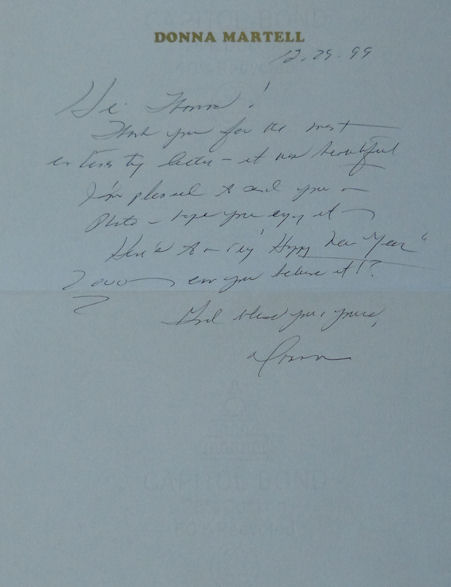 DONNA MARTELL
12.29.99
Hi Thomas!
Thank you for the most
interesting letter - it was beautiful
I'm pleased to send you a
photo - hope you enjoy it -
Here's to a "Happy New Year"
2000 can you believe it!?
God bless you & yours,
Donna